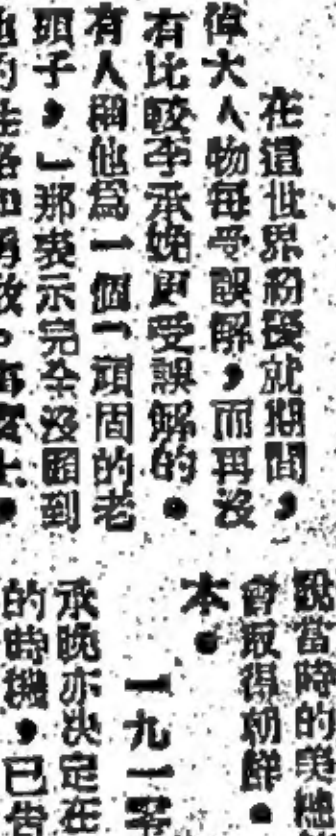 在這世界紛擾就期間，
偉大人物每受誤解，而再沒
有比較李承晚更受誤解的。
有人稱他為一個「頑固的老
頭子，」那表示完全沒顧到
他的性格和勇敢。
說當時的美總
會取得朝鮮。
本。
一九一
承晚亦決定在
的時機，已告